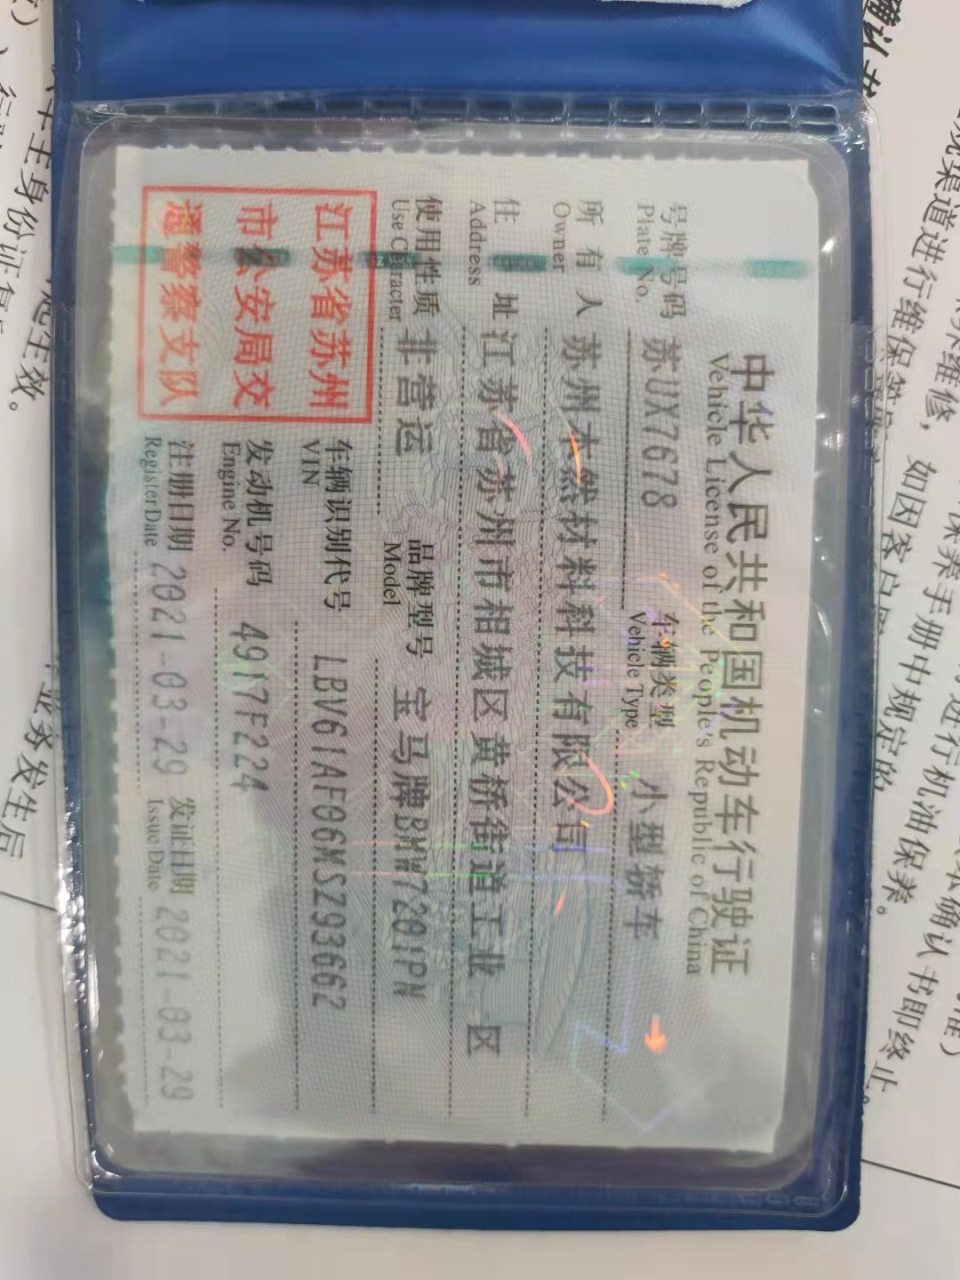 中华人民共和国机动车行驶证
Vehicle License of the People's Republic of China
号牌号码 苏UX7678 车辆类型 小型轿车
Plate No. Vehicle Type
所有人 苏州木然材料科技有限公司
Owner
住址 江苏省苏州市相城区黄桥街道工业 区
Address
使用性质 非营运 品牌型号 宝马牌BMW7201PN
Use Character Model
江苏省苏州
市公安局交
通警察支队
车辆识别代号 LBV61AF06MSZ93662
VIN
发动机号码 4917F224
Engine No.
注册日期 2021-03-29 发证日期 2021-03-29
Register Date Issue Date
确认书即终止。
如因客户
保养手册中规定的
进行机油保养。
车主身份证复
起生效。
业务发生后